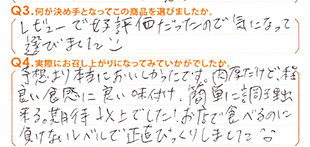 Q3.何が決め手となってこの商品を選びましたか。
レビューで好評価だったので気になって
選びました
Q4.実際にお召し上がりになってみていかがでしたか。
予想より本当においしかったです。肉厚だけど、程
良い食感に良い味付け、簡単に調理出
来る。期待以上でした!お店で食べるのに
負けないレベルで正直びっくりしました